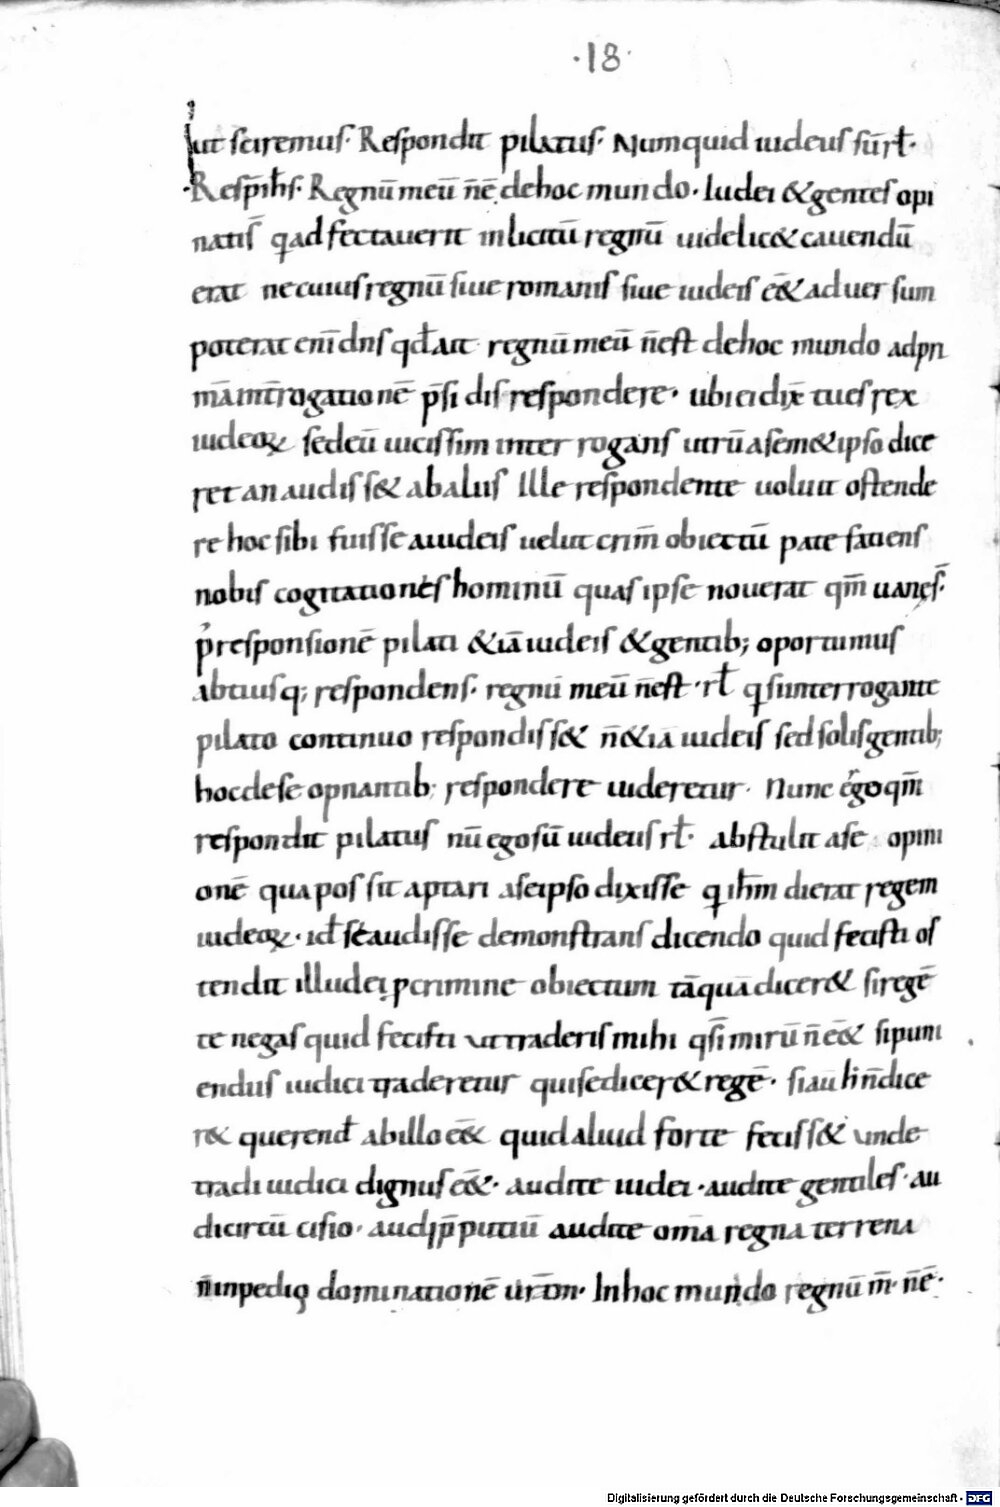 ·18·
ut sciremus· Respondit pilatus· Numquid iudeus sū rł·
·Resp̄ ih̄s· Regnū meū n̄ ē de hoc mundo· Iudei & gentes opi
natis̄ qđ affectauerit inlicitū regnū uidelic& cauendū
erat ne cuius regnū siue romanis siue iudeis ēē& aduersum
poterat eni dn̄s qđ ait regnū meū n̄ est de hoc mundo ad pri
mā int̄rogationē p̄si dis respondere· ubi ei dix̄ tu es rex
iudeoꝝ sed eū uicissim interrogans utrū a sem&ipso dice
ret an audiss& ab aliis Ille respondente uoluit ostende
re hoc sibi fuisse a iudeis uelut crim̄ obiectū patefatiens
nobis cogitationes hominū quas ipse nouerat qm̄ uanę s̄·
P responsionē pilati & iā iudeis & gentib; oportunius
aptiusq; respondens· regnū meū n̄ est rł q si interrogante
pilato continuo respondiss& n̄ & iā iudeis sed solis gentib;
hoc de se opinantib; respondere uideretur· Nunc ergo qm̄
respondit pilatus nū ego sū iudeus rł· abstulit a se opini
onē qua possit aptari a se ipso dixisse q ih̄m dicerat regem
iudeoꝝ· id se audisse demonstrans dicendo quid fecisti os
tendit illud ei p crimine obiectum tāquā dicer& si regē
te negas quid fecisti ut traderis mihi qsi mirū n̄ ēē& si puni
endus iudici traderetur qui se dicer& regē· si aū h̄ n̄ dice
r& querend̄ ab illo ēē& quid aliud forte feciss& unde
tradi iudici dignus ēē&· audite iudei· audite gentiles· au
di circū cisio· audi p̄putiū audite om̄a regna terrena
n̄ inpedio dominationē urām· In hoc mundo regnū m̄· n̄ ē·
Digitalisierung gefördert durch die Deutsche Forschungsgemeinschaft - DFG